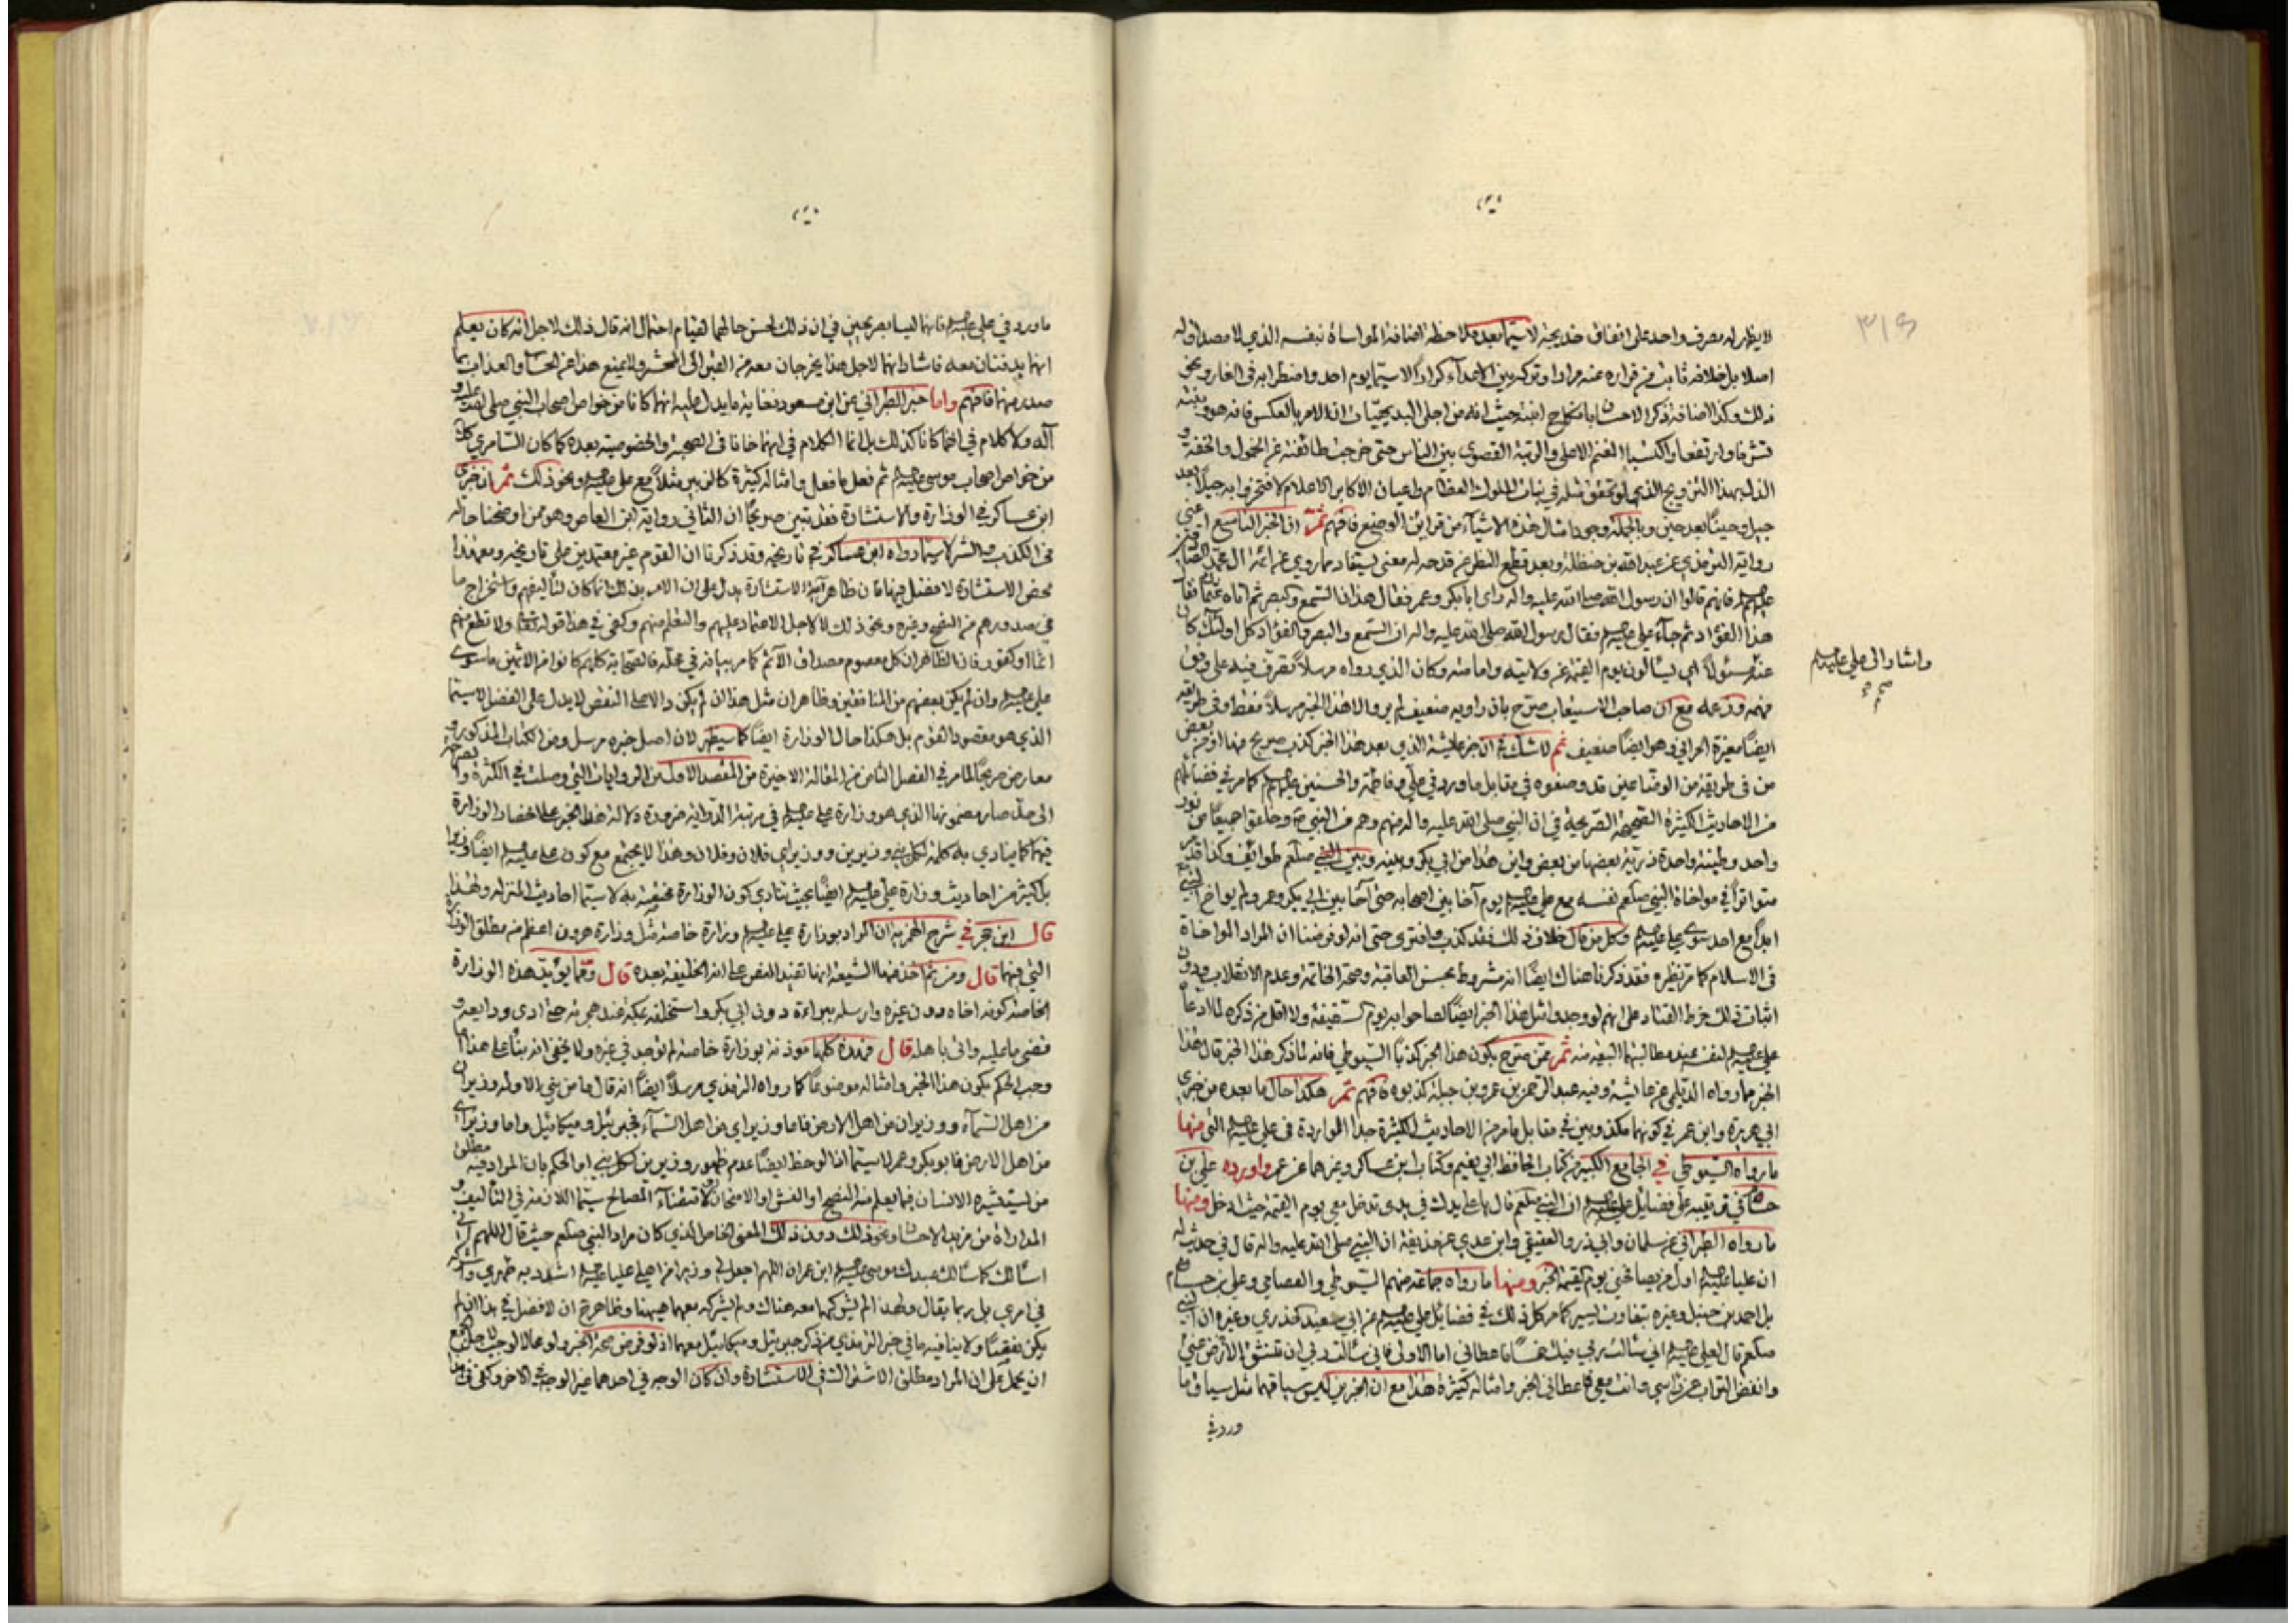 ٣١٤
لا يظهر له مصرف واحد على انفاق خديجة لا سيما بعد ملاحظة اضافة المواساة بنفسه الذي لا مصداق له
اصلا بل خلافه ثابت من فراره عنه مرارا وتركه بين الاعداء كرارا لا سيما يوم احد واضطرابه في الغار ونحو
ذلك وكذا اضافة ذكر الاحسان بانكاح ابنته حيث انه من اجلى البديهيات ان الامر بالعكس فانه هو وبنته
تشرفا وارتفعا واكتسبا الفخر الاصلي والرتبة القصوى بين الناس حتى خرجت طائفته عن الخمول والخفة و
الذلة بهذا التزويج الذي لو تحقق مثله في بنات الملوك العظام واعيان الاكابر الاعلام لافتخروا به جيلا بعد
جيل وحينا بعد حين وبالجملة وجود امثال هذه الاشياء من قرائن الوضع فافهم ثم ان الخبر التاسع اعني
رواية الترمذي عن عبد الله بن حنطلة وبعد قطع النظر عن قدحه له معنى يستفاد مما روي عن ائمة ال محمد
عليهم السلام فانهم قالوا ان رسول الله صلى الله عليه واله راى ابا بكر وعمر فقال هذان السمع والبصر ثم اتاه عثمان فقال
هذا الفؤاد ثم جاء علي عليه السلام فقال رسول الله صلى الله عليه واله ان السمع والبصر والفؤاد كل اولئك كان
وأشار الى علي عليه السلام
صح
عنه مسئولا اي يسألون يوم القيمة عن ولايته وامامته وكان الذي رواه مرسلا تصرف فيه على وفق
فهمه وزعمه مع ان صاحب الاستيعاب صرح بان راويه ضعيف لم يرو الا هذا الخبر مرسلا فقط وفي طريقه
ايضا مغيرة الحرامي وهو ايضا ضعيف ثم لا شك في ان خبر عايشة الذي بعد هذا الخبر كذب صريح منها او من بعض
من في طريقه من الوضاعين قد وضعوه في مقابل ما ورد في علي وفاطمة والحسنين عليهم السلام كما مر في فضائلهم
من الاحاديث الكثيرة الصحيحة الصريحة في ان النبي صلى الله عليه واله منهم وهم من النبي ص وخلقوا جميعا من نور
واحد وطينة واحدة ذرية بعضها من بعض واين هذا من ابي بكر وبينه وبين النبي صلعم طوائف وكذا قد مر
متواترا في مواخاة النبي صلعم نفسه مع علي عليه السلام يوم آخا بين اصحابه حتى آخا بين ابي بكر وعمر ولم يواخ النبي
ابدا مع احد سوى علي عليه السلام وكل من قال خلاف ذلك فقد كذب وافترى حتى انه لو فرضنا ان المراد المواخاة
في الاسلام كما مر نظيره فقد ذكرنا هناك ايضا انه مشروط بحسن العاقبة وصحة الخاتمة وعدم الانقلاب ودون
اثبات ذلك خرط القتاد على انهم لو وجدوا مثل هذا الخبر ايضا لصاحوا به يوم السقيفة ولا اقل من ذكره لما ادعا
علي عليه السلام لنفسه عند مطالبتهما البيعة منه ثم ممن صرح بكون هذا الخبر كذبا السيوطي فانه لما ذكر هذا الخبر قال هذا
الخبر مما رواه الديلمي عن عايشة وفيه عبد الرحمن بن عمرو بن جبلة كذبوه فافهم ثم هكذا حال ما بعده من خبري
ابي هريرة وابن عمر في كونهما مكذوبين في مقابل ما مر من الاحاديث الكثيرة جدا الواردة في علي عليه السلام التي منها
ما رواه السيوطي في الجامع الكبير من كتاب الحافظ ابي نعيم وكتاب ابن عساكر وغيرهما عن عمر واورده علي بن
حسام في ترتيبه على فضائل علي عليه السلام ان النبي صلعم قال يا علي يدك في يدي تدخل معي يوم القيمة حيث ادخل ومنها
ما رواه الطبراني عن سلمان وابي ذر والعقيقي وابن عدي عن حذيفة ان النبي صلى الله عليه واله قال في حديث له
ان عليا عليه السلام اول من يصافحني يوم القيمة الخبر ومنها ما رواه جماعة منهم السيوطي والعصامي وعلي بن حسام
بل احمد بن حنبل وغيره بتفاوت يسير كما مر كل ذلك في فضائل علي عليه السلام عن ابي سعيد الخدري وغيره ان النبي
صلعم قال لعلي عليه السلام اني سألت ربي فيك خمسا فاعطاني اما الاولى فاني سألت ربي ان تنشق الارض عني
وانفض التراب عن راسي وانت معي فاعطاني الخبر وامثاله كثيرة هذا مع ان الخبرين ليس سياقهما مثل سياق ما
ورد في
ما ورد في علي عليه السلام فانهما ليسا بصريحين في ان ذلك لحسن حالهما لقيام احتمال انه قال ذلك لاجل انه كان يعلم
انهما يدفنان معه فاشار انهما لاجل هذا يخرجان معه من القبر الى المحشر ولا يمنع هذا عن الحساب والعذاب بما
صدر منهما فافهم واما خبر الطبراني عن ابن مسعود فغاية ما يدل عليه انهما كانا من خواص اصحاب النبي صلى الله عليه و
آله ولا كلام في انهما كانا كذلك بل انما الكلام في انهما خانا في الصحبة والخصوصية بعده كما كان السامري كان
من خواص اصحاب موسى عليه السلام ثم فعل ما فعل وامثاله كثيرة كالزبير مثلا مع علي عليه السلام ونحو ذلك ثم ان خبري
ابن عساكر في الوزارة والاستشارة فقد تبين صريحا ان الثاني رواية ابن العاص وهو ممن اوضحنا حاله
في الكذب والشر لا سيما رواه ابن عساكر في تاريخه وقد ذكرنا ان القوم غير معتمدين على تاريخه ومع هذا
محض الاستشارة لا فضل فيها فان ظاهر آية الاستشارة يدل على ان الامر بذلك انما كان لتأليفهم واستخراج ما
في صدورهم من النصح وغيره ونحو ذلك لا لاجل الاعتماد عليهم والتعلم منهم وكفى في هذا قوله تعالى ولا تطع منهم
آثما او كفورا فان الظاهر ان كل معصوم مصداق الآثم كما مر بيانه في محله فالصحابة كلهم كانوا من الاثمين ما سوى
علي عليه السلام وان لم يكن بعضهم من المنافقين وظاهر ان مثل هذا ان لم يكن دالا على النقص لا يدل على الفضل لا سيما
الذي هو مقصود القوم بل هكذا حال الوزارة ايضا كما سيظهر لان اصل خبره مرسل ومن الكتاب المذكور و
معارض صريحا لما مر في الفصل الثامن من المقالة الاخيرة من المقصد الاول من الروايات التي وصلت في الكثرة والصراحة
الى حد صار مضمونها الذي هو وزارة علي عليه السلام في مرتبة الدراية ضرورة دلالة هذا الخبر على انحصار الوزارة
فيهما كما ينادي به كلمة لكل نبي وزيرين ووزيراي فلان وفلان وهذا لا يجتمع مع كون علي عليه السلام ايضا وزيرا
بل كثير من احاديث وزارة علي عليه السلام ايضا بحيث تنادي بكون الوزارة مختصة به لا سيما احاديث المنزلة ولهذا
قال ابن حجر في شرح الهمزية ان المراد بوزارة علي عليه السلام وزارة خاصة مثل وزارة هرون اعظم من مطلق الوزارة
التي فيهما قال ومن ثم اخذ منها الشيعة انها تفيد النص على انه الخليفة بعده قال ومما يؤيد هذه الوزارة
الخاصة كونه اخاه دون غيره وارسله ببراءة دون ابي بكر واستخلفه بمكة عند هجرته حتى ادى ودايعه و
قضى ما عليه واتى باهله قال فهذه كلها مؤذنة بوزارة خاصة لم توجد في غيره ولا يخفى انه بناء على هذا ايضا
وجب الحكم بكون هذا الخبر وامثاله موضوعا كما رواه الترمذي مرسلا ايضا انه قال ما من نبي الا وله وزيران
من اهل السماء ووزيران من اهل الارض فاما وزيراي من اهل السماء فجبرئيل وميكائيل واما وزيراي
من اهل الارض فابو بكر وعمر لا سيما اذا لوحظ ايضا عدم ظهور وزيرين لكل نبي او الحكم بان المراد فيه مطلق
من يستشيره الانسان فيما يعلم منه النصح او الغش او الامتحان او اقتضاء المصالح سيما اللازمة في التأليف و
المداراة من مزيد الاحسان ونحو ذلك دون ذلك المعنى الخاص الذي كان مراد النبي صلعم حيث قال اللهم اني
اسألك كما سألك عبدك موسى عليه السلام ابن عمران اللهم اجعل لي وزيرا من اهلي عليا عليه السلام اشدد به ظهري واشركه
في امري بل ربما يقال ولهذا لم يشركهما معه هناك ولم يشركه معهما ههنا وظاهر ثم ان لا فضل في هذا ان لم
يكن نقصا ولا ينافيه ما في خبر الترمذي من ذكر جبرئيل وميكائيل معهما اذ لو فرض صحة الخبر ولو محالا لوجب حمله
ان يحمل على ان المراد مطلق الاشتراك في الاستشارة وان كان الوجه في احدهما غير الوجه في الاخر وكفى في هذا